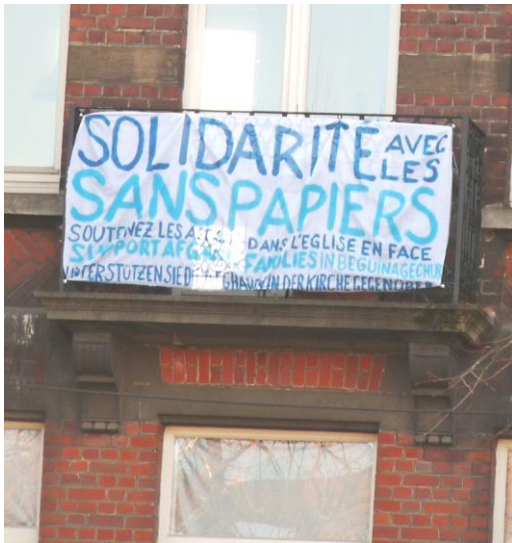 SOLIDARITÉ AVEC LES
SANS PAPIERS
SOUTENEZ LES DANS L'EGLISE EN FACE
SUPPORT FAMILIES IN BEGUINAGE
UNTERSTÜTZEN SIE IN DER KIRCHE GEGENÜBER